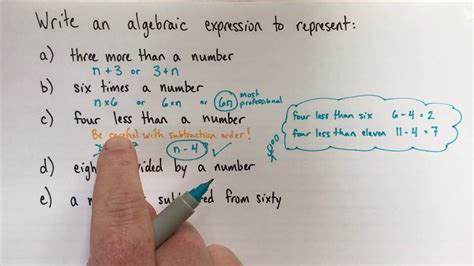 Write an algebraic expression to represent:
a) three more than a number
n + 3 or 3 + n
b) six times a number
n × 6 or 6 × n or 6n most professional
c) four less than a number
Be careful with subtraction order!
n - 4 ✓
four less than six 6 - 4 = 2
four less than eleven 11 - 4 = 7
d) divided by a number
e) a from sixty